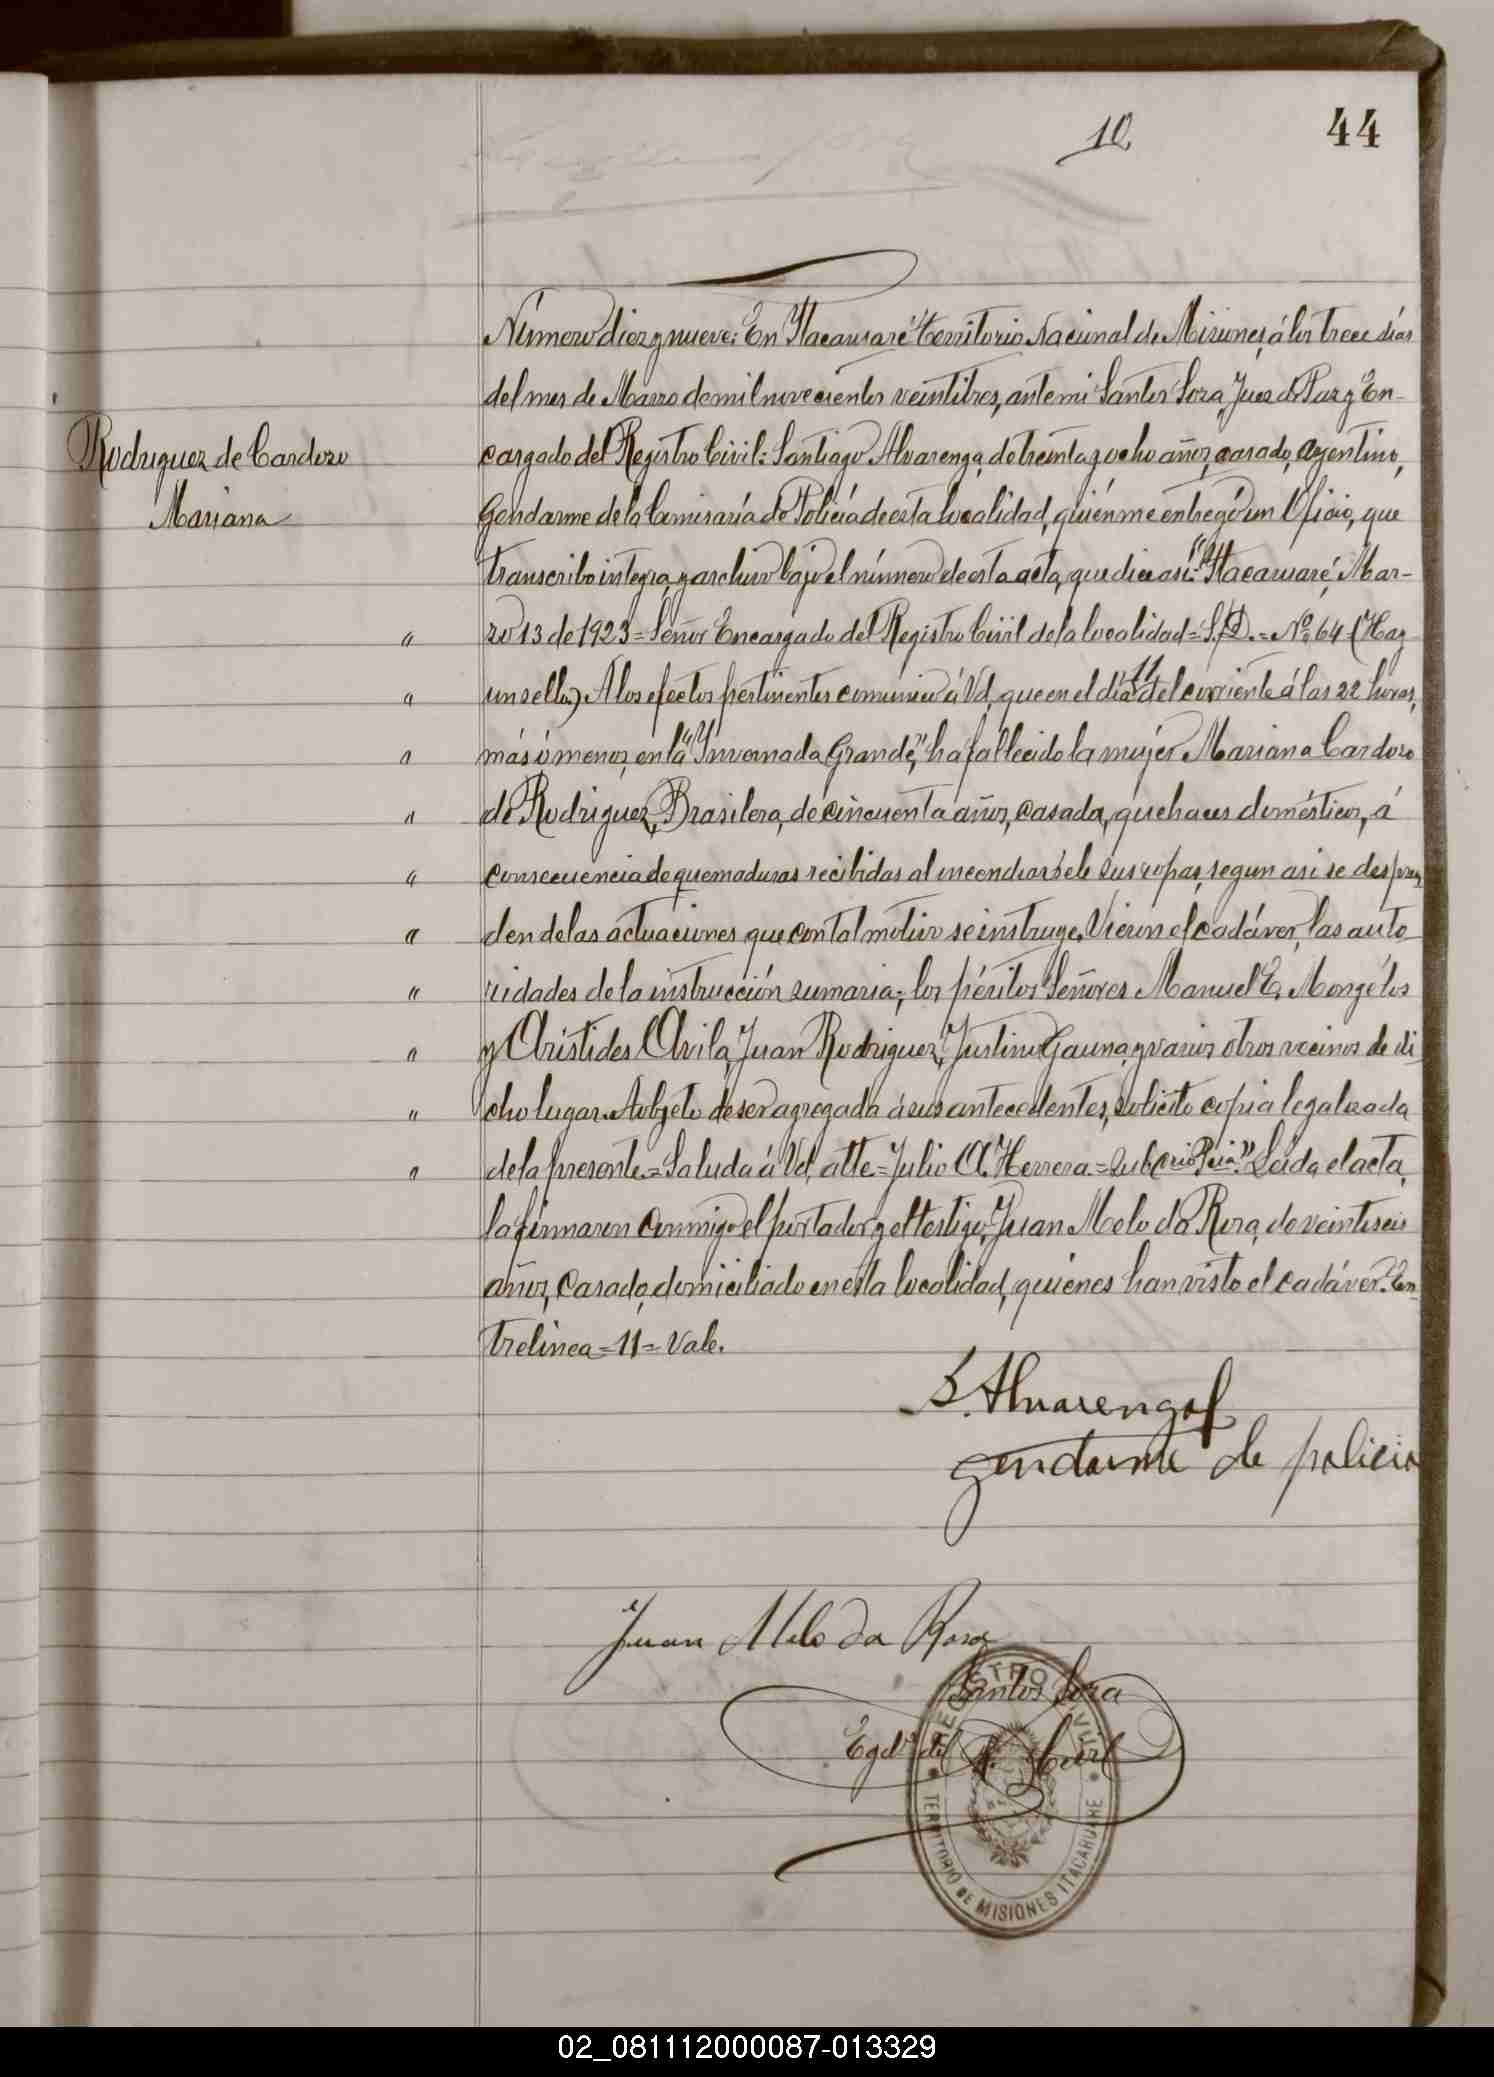 10
44
Número diez y nueve: En Itacaruaré Territorio Nacional de Misiones, á los trece días
del mes de Marzo de mil novecientos veintitres, ante mi Santos Sora, Juez de Paz y En-
Rodriguez de Cardozo
cargado del Registro Civil: Santiago Alvarenga, de treinta y ocho años, casado, argentino,
Mariana
Gendarme de la Comisaría de Policía de esta localidad, quién me entregó un Oficio, que
transcribo integra, y archivo bajo el número de esta acta, que dice asi: "Itacaruaré, Mar-
" zo 13 de 1923 = Señor Encargado del Registro Civil de la localidad = S/D. = Nº 64 = (Hay
" un sello) A los efectos pertinentes comunico á Vd, que en el día 11 del corriente á las 22 horas,
" más ó menos, en la "Ynvernada Grande", ha fallecido la mujer Mariana Cardozo
" de Rodriguez, Brasilera, de cincuenta años, casada, quehaceres domésticos, á
" consecuencia de quemaduras recibidas al incendiarsele sus ropas, segun asi se despren
" den de las actuaciones que con tal motivo se instruye. Vieron el cadáver, las auto
" ridades de la instrucción sumaria; los péritos Señores Manuel E. Mongelós
" y Aristides Avila, Juan Rodriguez, Justino Gauna, y varios otros vecinos de di
" cho lugar. A objeto de ser agregada á sus antecedentes, solicito copia legalizada
" de la presente. = Saluda á Vd, atte = Julio A. Herrera. = Sub Crio Pcia." Leida el acta,
la firmaron conmigo el portador y el testigo, Juan Melo da Rosa, de veintiseis
años, casado, domiciliado en esta localidad, quiénes han visto el cadáver. En-
trelinea = 11 = Vale.
S. Alvarenga
gendarme de policia
Juan Melo da Rosa
Santos Sora
Egdo. del R. Civil
REGISTRO CIVIL
TERRITORIO DE MISIONES ITACARUARE
02_081112000087-013329